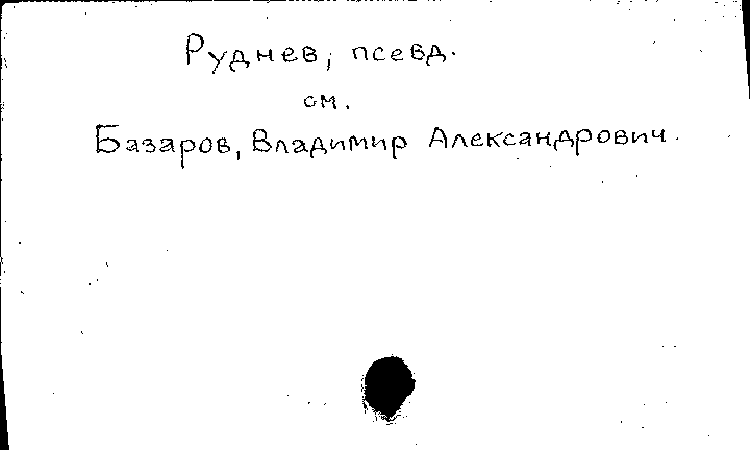 Руднев, псевд.
см.
Базаров, Владимир Александрович.